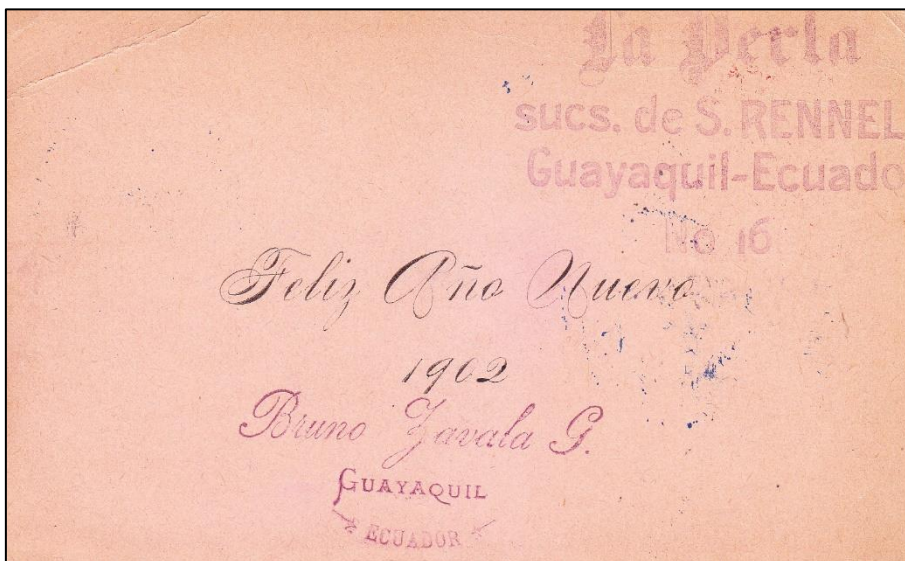 La Perla
sucs. de S. RENNEL
Guayaquil-Ecuado
No 16
Feliz Año Nuevo
1902
Bruno Zavala G.
GUAYAQUIL
ECUADOR